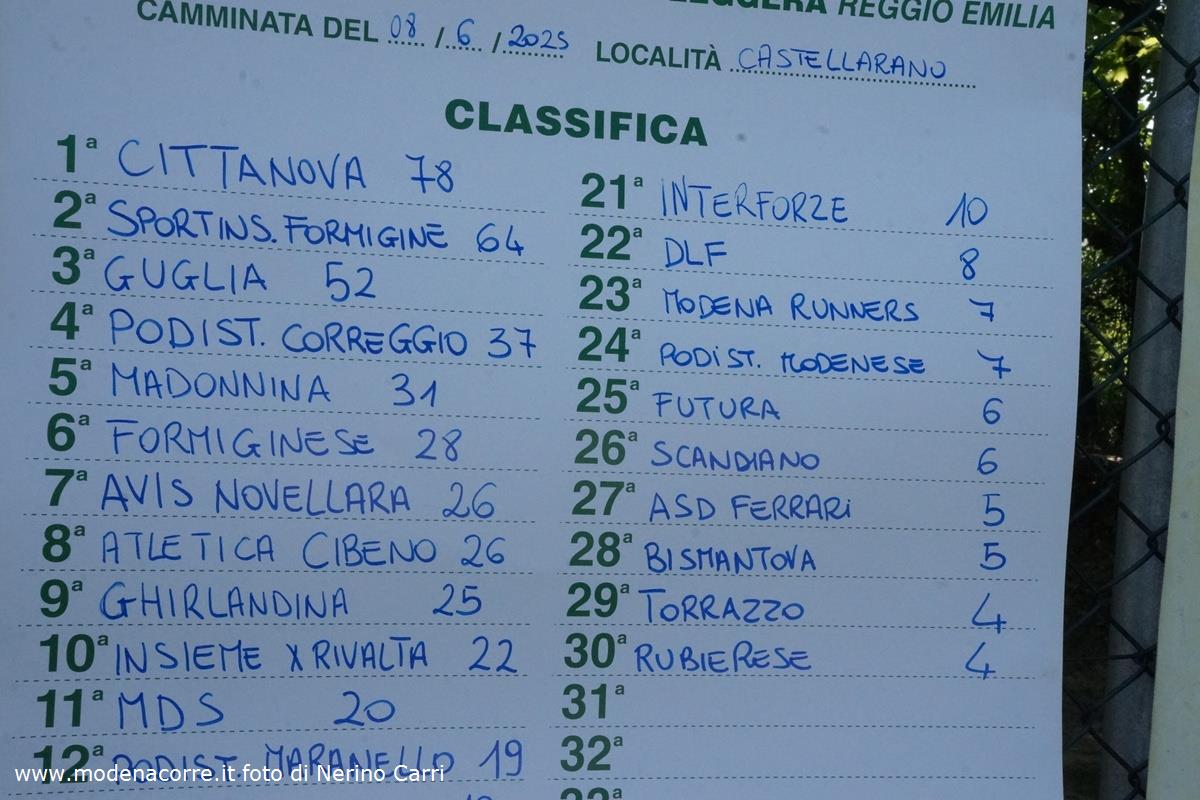 LEGGERA REGGIO EMILIA
CAMMINATA DEL 08 / 6 / 2025 LOCALITÀ CASTELLARANO
CLASSIFICA
1ª CITTANOVA 78
2ª SPORTINS. FORMIGINE 64
3ª GUGLIA 52
4ª PODIST. CORREGGIO 37
5ª MADONNINA 31
6ª FORMIGINESE 28
7ª AVIS NOVELLARA 26
8ª ATLETICA CIBENO 26
9ª GHIRLANDINA 25
10ª INSIEME X RIVALTA 22
11ª MDS 20
12ª PODIST. MARANELLO 19
21ª INTERFORZE 10
22ª DLF 8
23ª MODENA RUNNERS 7
24ª PODIST. MODENESE 7
25ª FUTURA 6
26ª SCANDIANO 6
27ª ASD FERRARi 5
28ª BISMANTOVA 5
29ª TORRAZZO 4
30ª RUBIERESE 4
31ª
32ª
www.modenacorre.it foto di Nerino Carri